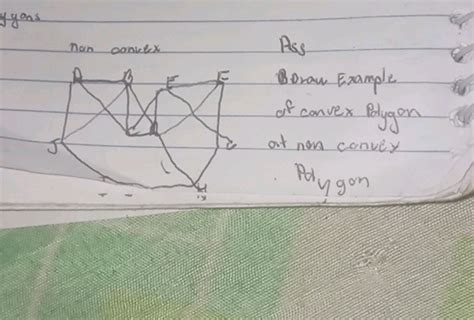 ygons
non convex
A B E F
J C D G
H
Ass
Draw Example
of convex Polygon
at non convex
Polygon